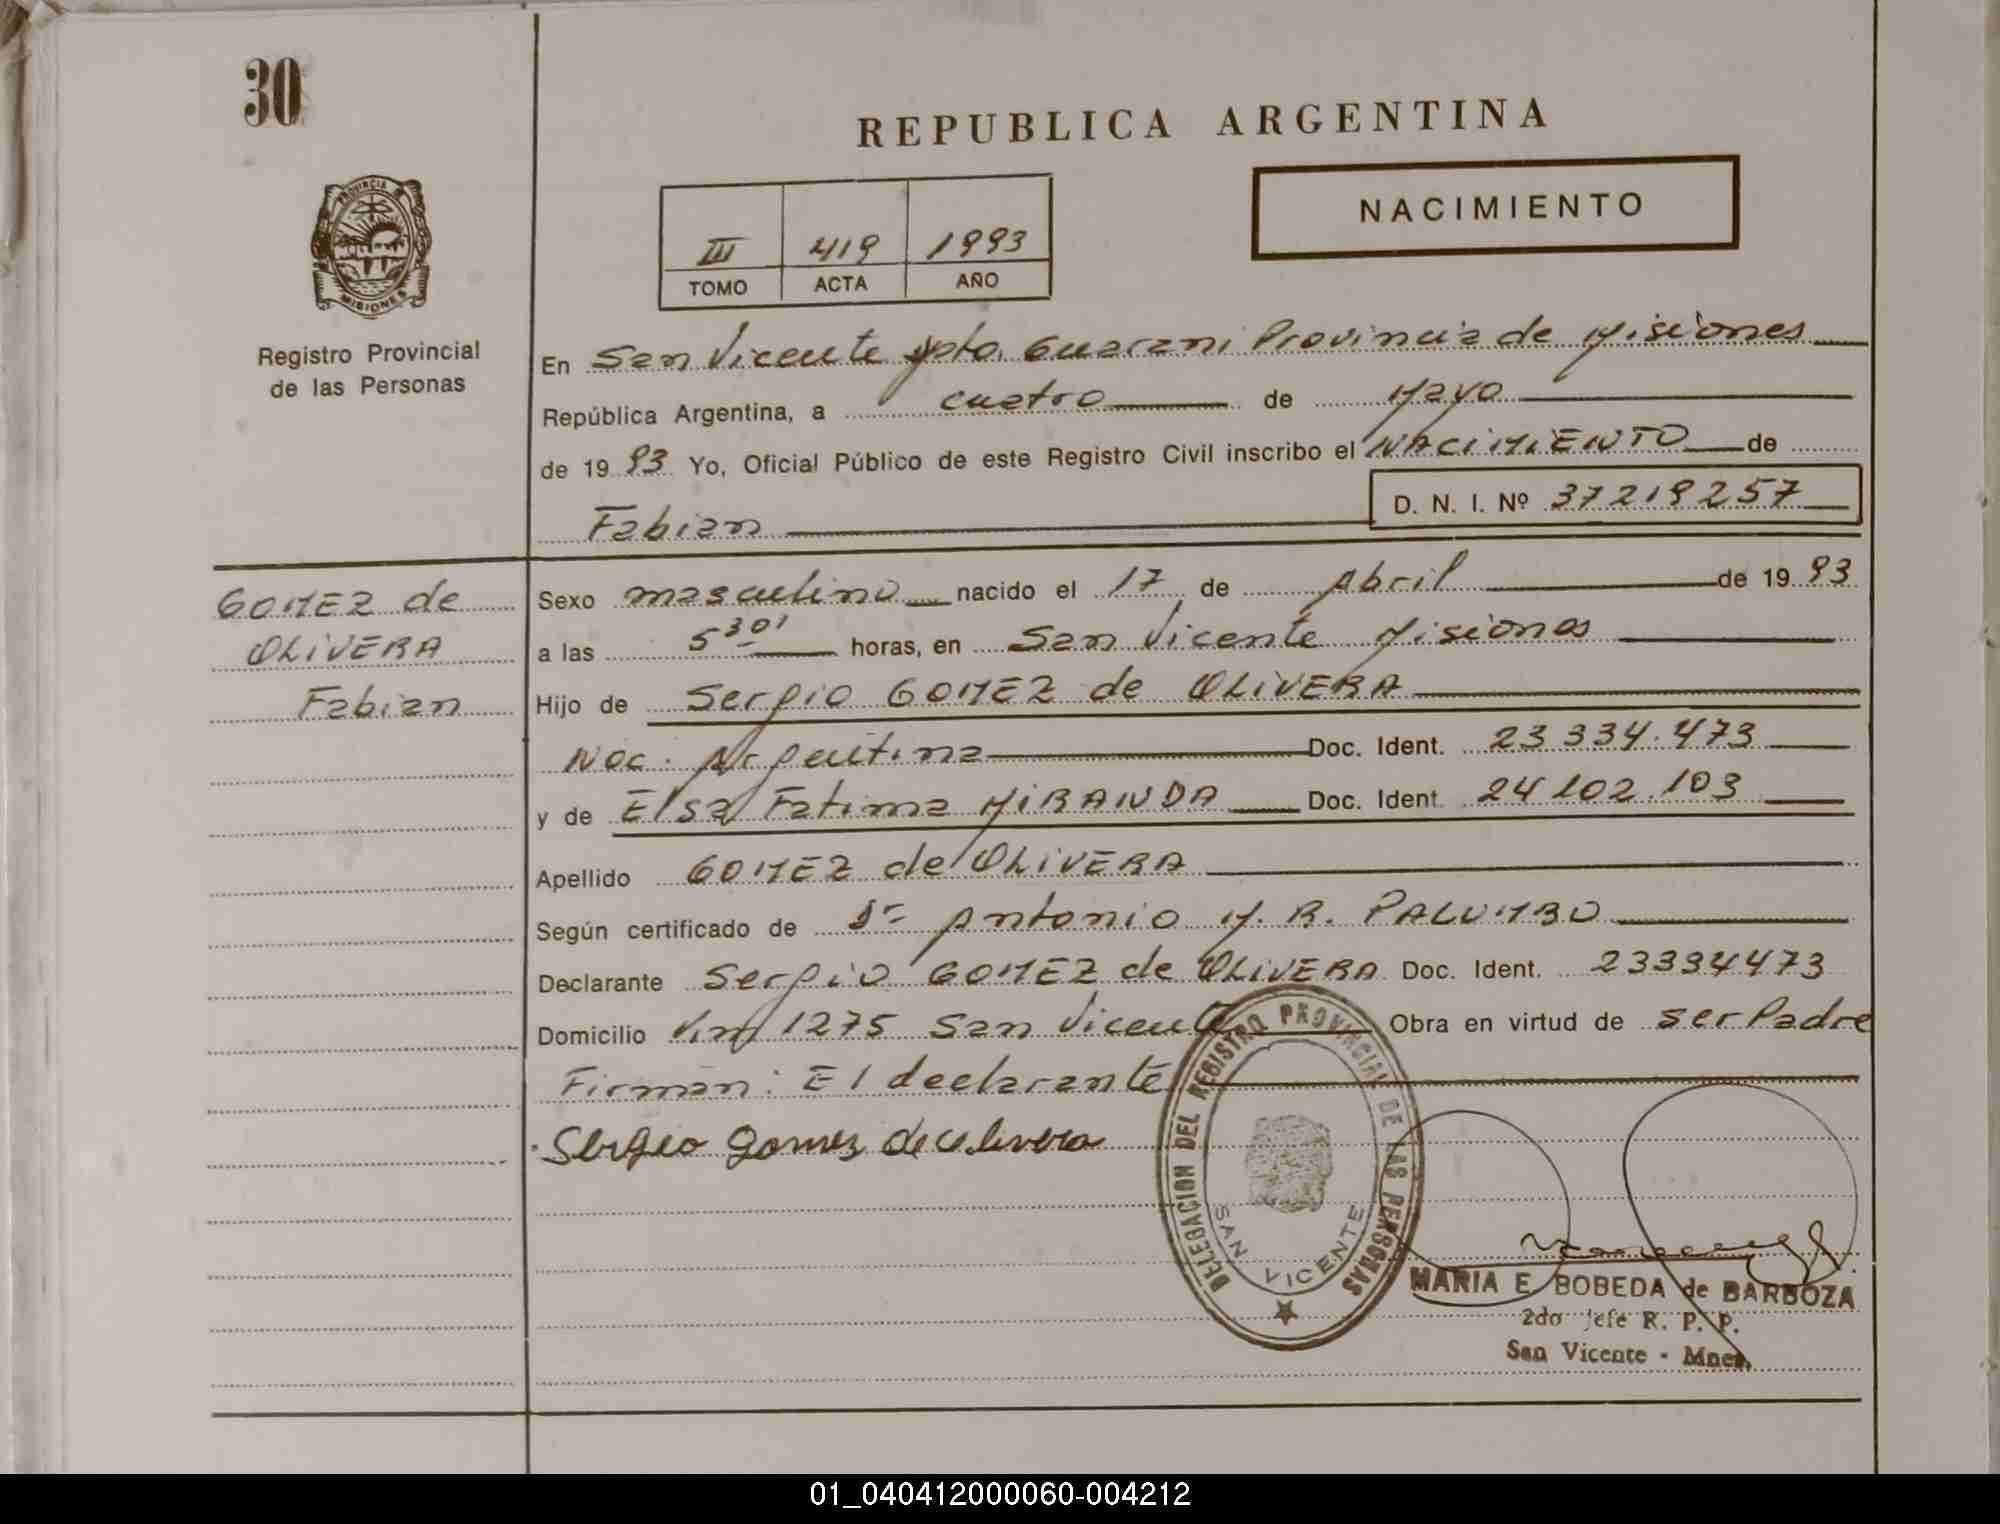 30
REPUBLICA ARGENTINA
PROVINCIA
MISIONES
Registro Provincial
de las Personas
NACIMIENTO
III 419 1993
TOMO ACTA AÑO
En San Vicente Dpto. Guarani Provincia de Misiones
República Argentina, a cuatro de Mayo
de 1993 Yo, Oficial Público de este Registro Civil inscribo el NACIMIENTO de
D. N. I. Nº 37219257
Fabian
GOMEZ de
OLIVERA
Fabian
Sexo masculino nacido el 17 de Abril de 1993
a las 5 30' horas, en San Vicente Misiones
Hijo de Sergio GOMEZ de OLIVERA
Nac. Argentina Doc. Ident. 23 334.473
y de Elsa Fatima MIRANDA Doc. Ident. 24 102.103
Apellido GOMEZ de OLIVERA
Según certificado de Dr Antonio M. R. PALUMBO
Declarante Sergio GOMEZ de OLIVERA Doc. Ident. 23334473
Domicilio 1275 San Vicente Obra en virtud de ser Padre
Firman: El declarante
Sergio gomez de olivera
DELEGACION DEL REGISTRO PROVINCIAL DE LAS PERSONAS
SAN VICENTE
MARIA E. BOBEDA de BARBOZA
2do Jefe R. P. P.
San Vicente - Mnes.
01_040412000060-004212